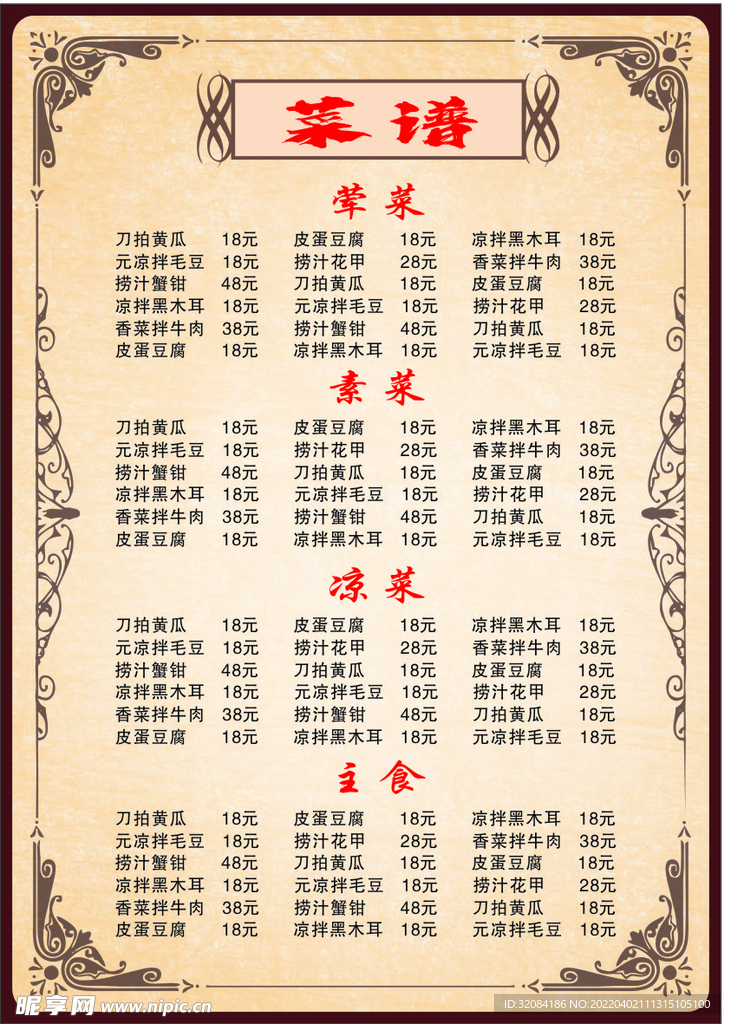 菜谱
荤菜
刀拍黄瓜 18元 皮蛋豆腐 18元 凉拌黑木耳 18元
元凉拌毛豆 18元 捞汁花甲 28元 香菜拌牛肉 38元
捞汁蟹钳 48元 刀拍黄瓜 18元 皮蛋豆腐 18元
凉拌黑木耳 18元 元凉拌毛豆 18元 捞汁花甲 28元
香菜拌牛肉 38元 捞汁蟹钳 48元 刀拍黄瓜 18元
皮蛋豆腐 18元 凉拌黑木耳 18元 元凉拌毛豆 18元
素菜
刀拍黄瓜 18元 皮蛋豆腐 18元 凉拌黑木耳 18元
元凉拌毛豆 18元 捞汁花甲 28元 香菜拌牛肉 38元
捞汁蟹钳 48元 刀拍黄瓜 18元 皮蛋豆腐 18元
凉拌黑木耳 18元 元凉拌毛豆 18元 捞汁花甲 28元
香菜拌牛肉 38元 捞汁蟹钳 48元 刀拍黄瓜 18元
皮蛋豆腐 18元 凉拌黑木耳 18元 元凉拌毛豆 18元
凉菜
刀拍黄瓜 18元 皮蛋豆腐 18元 凉拌黑木耳 18元
元凉拌毛豆 18元 捞汁花甲 28元 香菜拌牛肉 38元
捞汁蟹钳 48元 刀拍黄瓜 18元 皮蛋豆腐 18元
凉拌黑木耳 18元 元凉拌毛豆 18元 捞汁花甲 28元
香菜拌牛肉 38元 捞汁蟹钳 48元 刀拍黄瓜 18元
皮蛋豆腐 18元 凉拌黑木耳 18元 元凉拌毛豆 18元
主食
刀拍黄瓜 18元 皮蛋豆腐 18元 凉拌黑木耳 18元
元凉拌毛豆 18元 捞汁花甲 28元 香菜拌牛肉 38元
捞汁蟹钳 48元 刀拍黄瓜 18元 皮蛋豆腐 18元
凉拌黑木耳 18元 元凉拌毛豆 18元 捞汁花甲 28元
香菜拌牛肉 38元 捞汁蟹钳 48元 刀拍黄瓜 18元
皮蛋豆腐 18元 凉拌黑木耳 18元 元凉拌毛豆 18元
昵享网 www.nipic.cn ID:32084186 NO:20220402111315105100